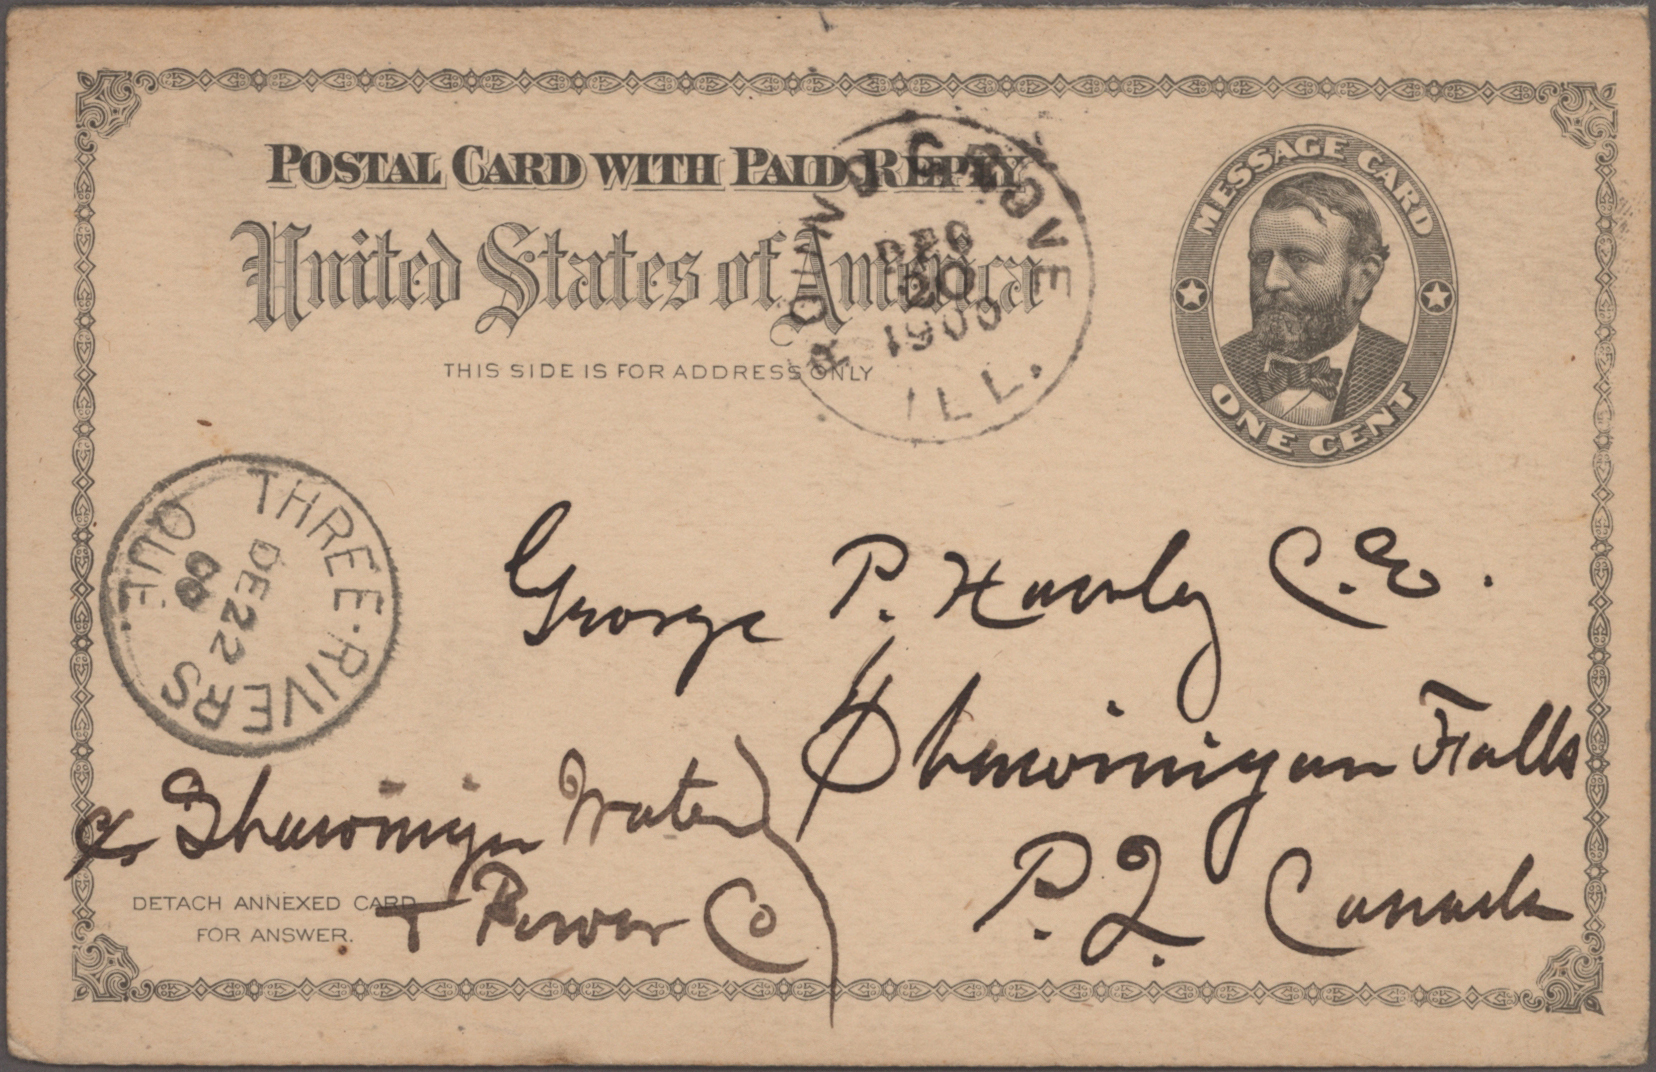 POSTAL CARD WITH PAID REPLY
United States of America
THIS SIDE IS FOR ADDRESS ONLY
MESSAGE CARD
ONE CENT
ROUND GROVE
DEC
20
1900
ILL.
THREE-RIVERS
QUE.
DE 22
00
George P. Hawley C.E.
Shawinigan Falls
P.Q. Canada
Shawinign Water
+ Power Co
DETACH ANNEXED CARD
FOR ANSWER.